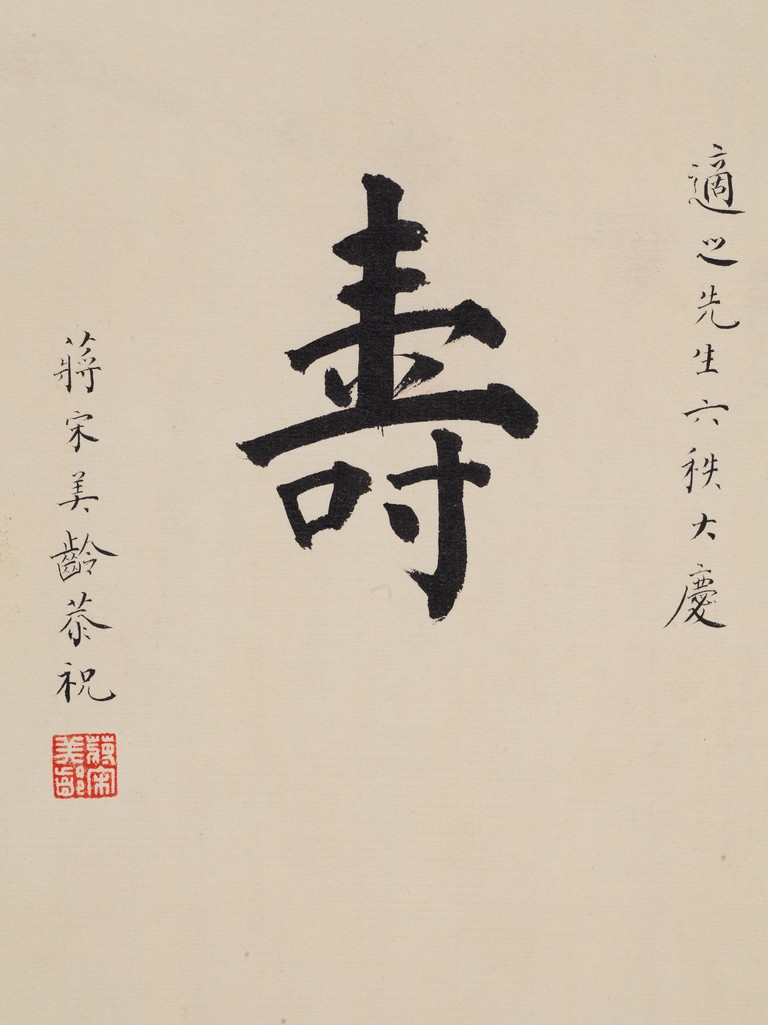 適之先生六秩大慶
壽
蔣宋美齡恭祝
蔣宋美齡